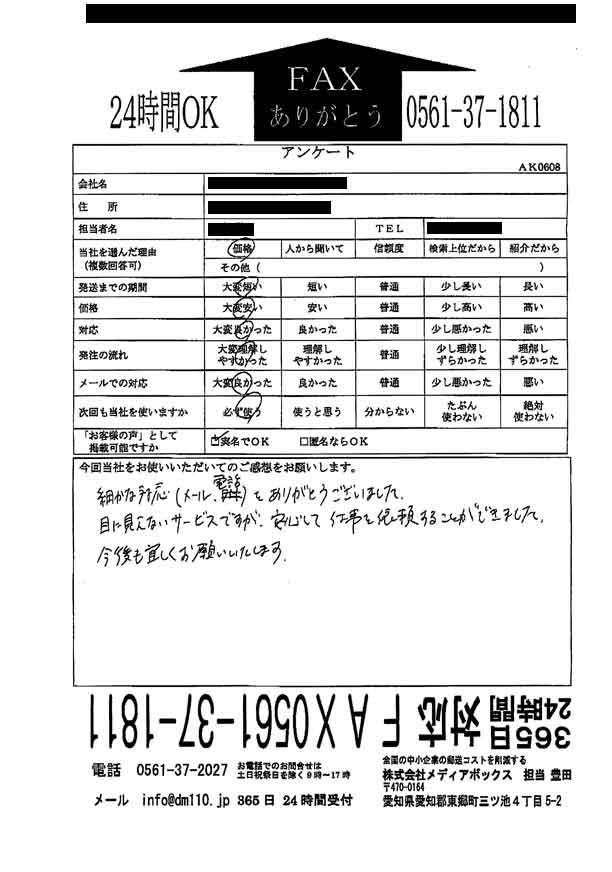 FAX
ありがとう
24時間OK
0561-37-1811
アンケート
AK0608
会社名
住　所
担当者名　TEL
当社を選んだ理由（複数回答可）　価格　人から聞いて　信頼度　検索上位だから　紹介だから
その他（　）
発送までの期間　大変短い　短い　普通　少し長い　長い
価格　大変安い　安い　普通　少し高い　高い
対応　大変良かった　良かった　普通　少し悪かった　悪い
発注の流れ　大変理解しやすかった　理解しやすかった　普通　少し理解しずらかった　理解しずらかった
メールでの対応　大変良かった　良かった　普通　少し悪かった　悪い
次回も当社を使いますか　必ず使う　使うと思う　分からない　たぶん使わない　絶対使わない
「お客様の声」として掲載可能ですか　□実名でOK　□匿名ならOK
今回当社をお使いいただいてのご感想をお願いします。
細かな対応（メール、電話）をありがとうございました。
目に見えないサービスですが、安心して仕事を依頼することができました。
今後も宜しくお願いいたします。
365日24時間対応FAX0561-37-1811
電話　0561-37-2027　お電話でのお問合せは土日祝祭日を除く9時〜17時
メール　info@dm110.jp 365日 24時間受付
全国の中小企業の郵送コストを削減する
株式会社メディアボックス　担当 豊田
〒470-0164
愛知県愛知郡東郷町三ツ池4丁目5-2